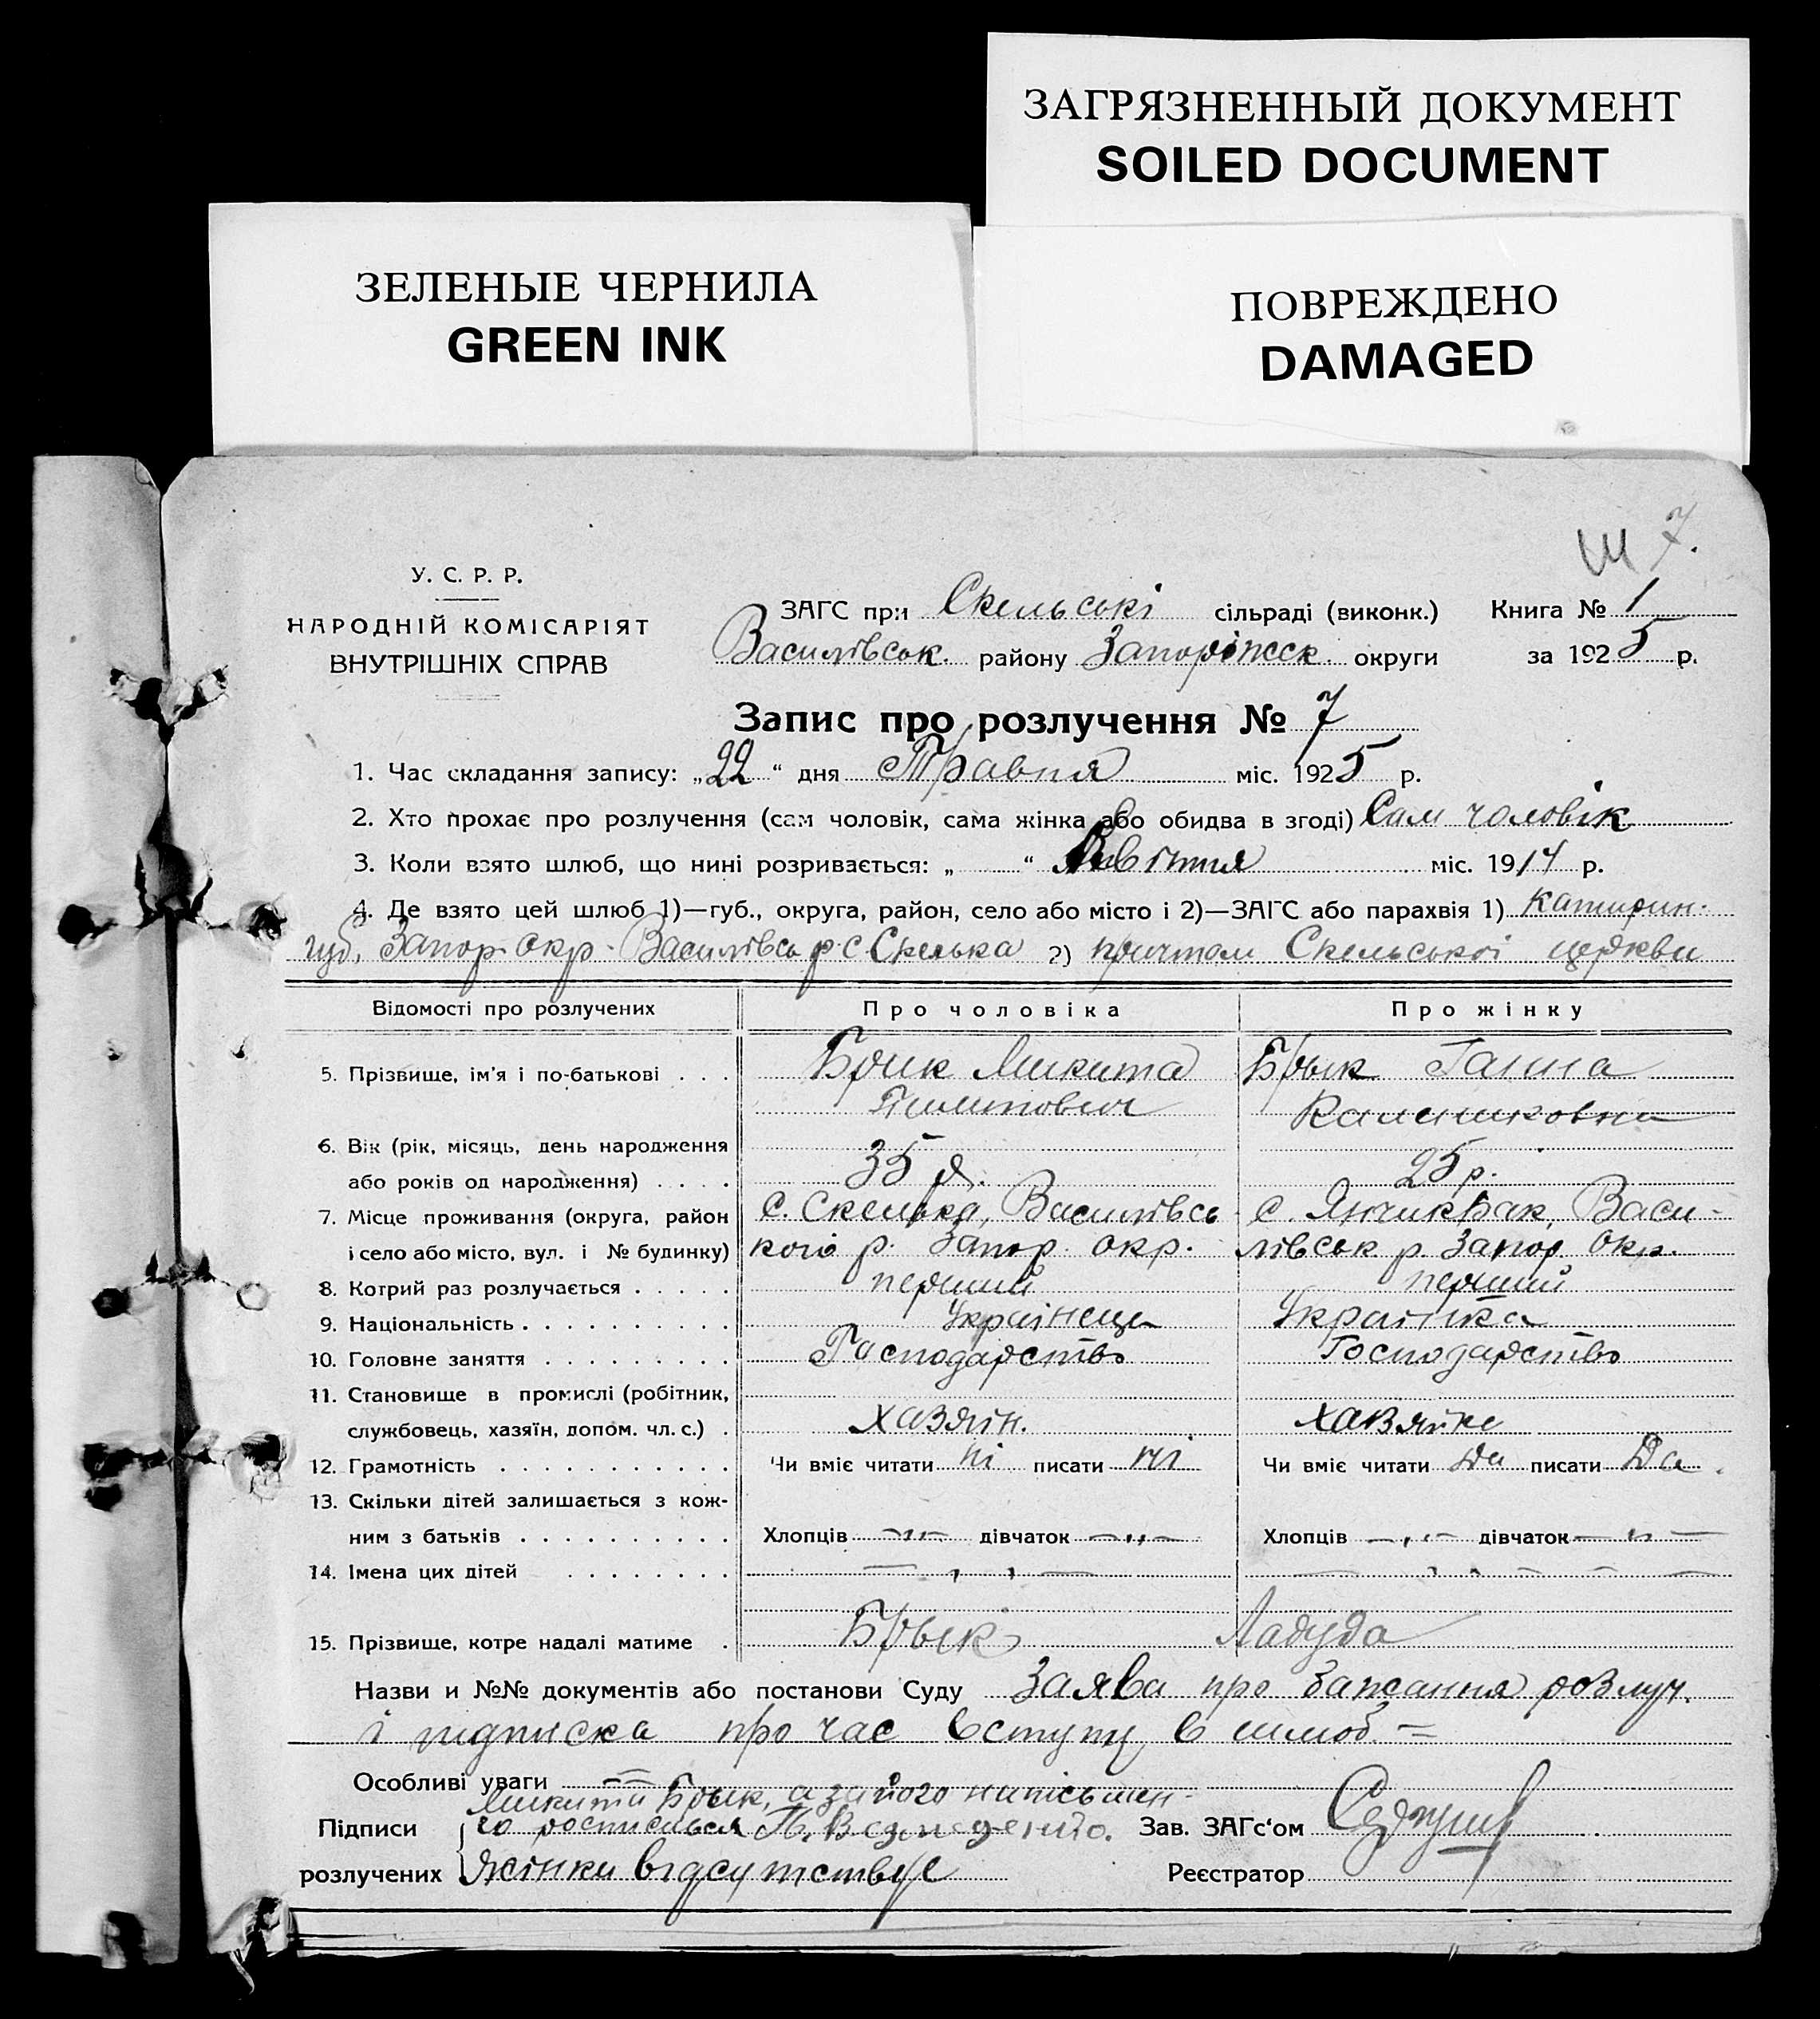 ЗАГРЯЗНЕННЫЙ ДОКУМЕНТ
SOILED DOCUMENT
ЗЕЛЕНЫЕ ЧЕРНИЛА
GREEN INK
ПОВРЕЖДЕНО
DAMAGED
7.
У. С. Р. Р.
НАРОДНІЙ КОМІСАРІЯТ
ВНУТРІШНІХ СПРАВ
ЗАГС при Скельські сільраді (виконк.) Книга № 1
Василівськ. району Запоріжск. округи за 1925 р.
Запис про розлучення № 7
1. Час складання запису: „22“ дня Травня міс. 1925 р.
2. Хто прохає про розлучення (сам чоловік, сама жінка або обидва в згоді) Сам чоловік
3. Коли взято шлюб, що нині розривається: „ “ Квітня міс. 1914 р.
4. Де взято цей шлюб 1)—губ., округа, район, село або місто і 2)—ЗАГС або парахвія 1) Катирин.
губ, Запор. окр. Василівсь р. с. Скелька 2) притом Скельської церкви
Відомості про розлучених Про чоловіка Про жінку
5. Прізвище, ім'я і по-батькові . . . Брик Микита Брык Ганна
Калениковна
6. Вік (рік, місяць, день народження
або років од народження) . . . . 35 р. 25 р.
7. Місце проживання (округа, район с. Скелька, Василівсь с. Янчикрак, Васи-
і село або місто, вул. і № будинку) кого р. Запор. окр. лівськ р Запор. Окр.
8. Котрий раз розлучається . . . . . перший перший
9. Національність . . . . . . . . . . Українець Українка
10. Головне заняття . . . . . . . . . Господарство Господарство
11. Становище в промислі (робітник,
службовець, хазяїн, допом. чл. с.) . хазяїн. хазяйка
12. Грамотність . . . . . . . . . . . Чи вміє читати ні писати ні Чи вміє читати Да писати Да.
13. Скільки дітей залишається з кож-
ним з батьків . . . . . . . . . . Хлопців —„— дівчаток —„— Хлопців —„— дівчаток —„—
14. Імена цих дітей . . . . . . . . — „ — — „ —
15. Прізвище, котре надалі матиме . Брык Ладуда
Назви и №№ документів або постанови Суду Заява про бажання розлуч.
і підписка про час вступу в шлюб. =
Особливі уваги
Микита Брык, а за його напісьмен-
Підписи го росписався П.
розлучених Жінки відсутствує
Зав. ЗАГс‘ом
Реєстратор